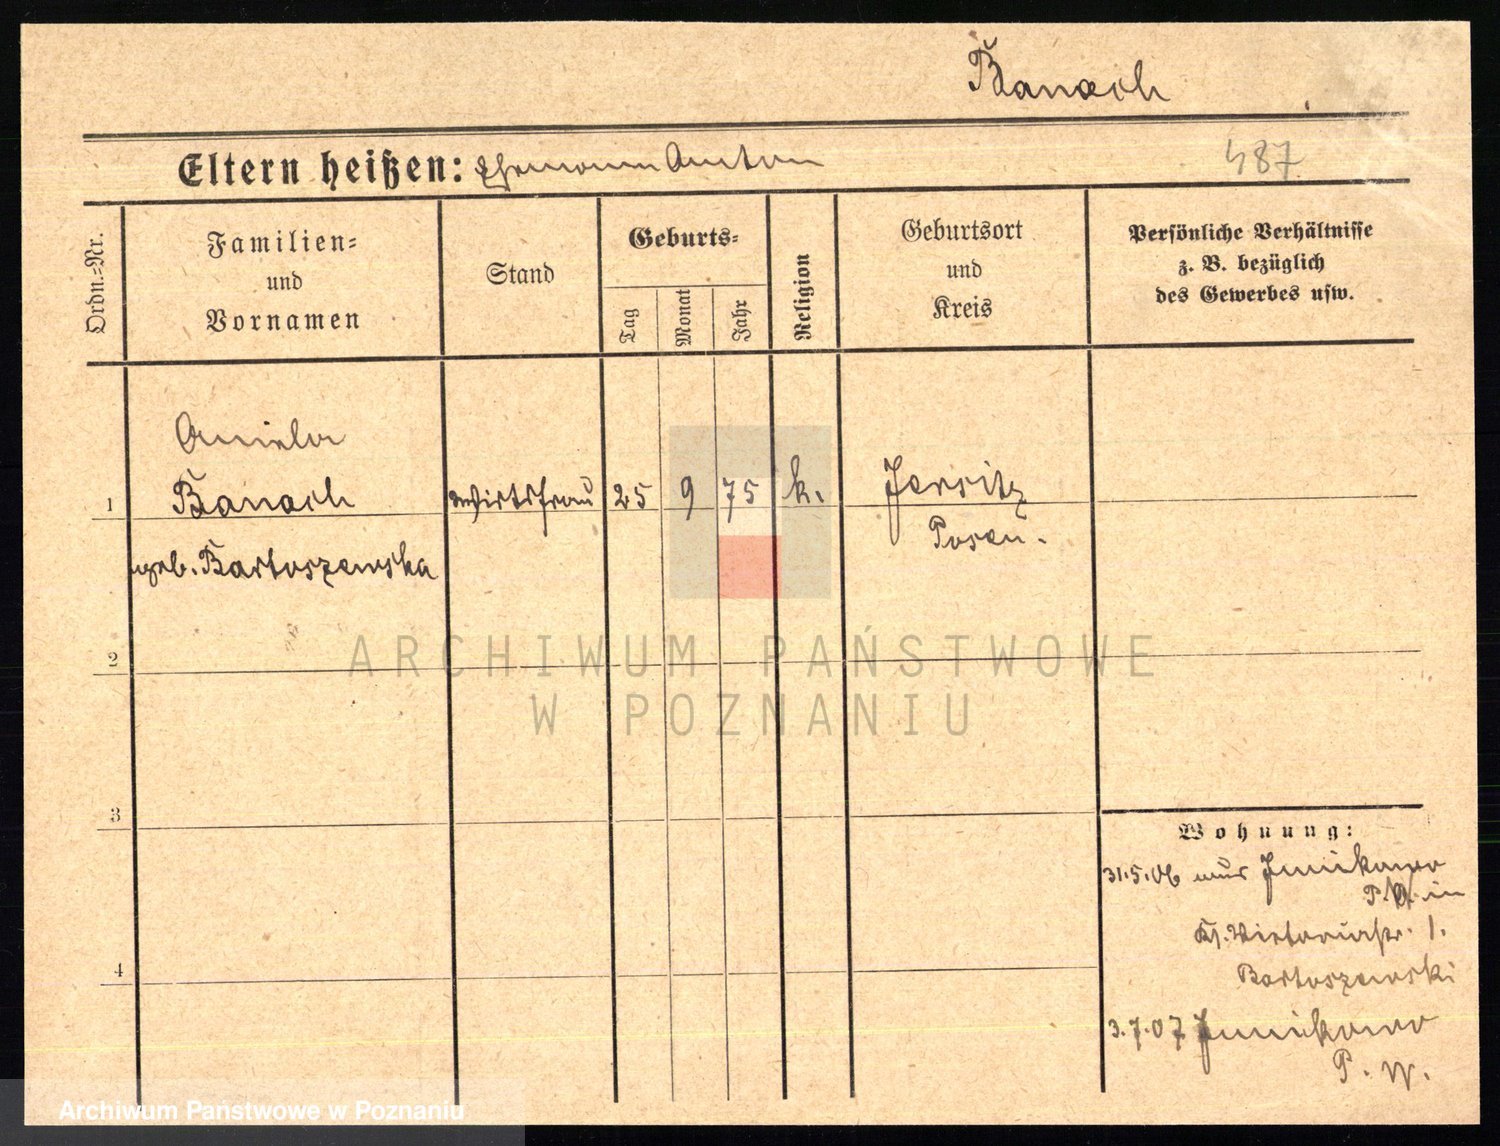 Banach
Eltern heißen: Ehemann Anton
487
Ordn.=Nr.
Familien=
und
Vornamen
Stand
Geburts=
Tag
Monat
Jahr
Religion
Geburtsort
und
Kreis
Persönliche Verhältnisse
z. B. bezüglich
des Gewerbes usw.
Aniela
1 Banach Wirtsfrau 25 9 75 k. Jersitz
geb. Bartoszewska Posen.
2
ARCHIWUM PAŃSTWOWE
W POZNANIU
3
Wohnung:
31.5.06 aus Junikowo
P. W. in
Kl. Victoriastr. 1.
Bartoszewski
4
3.7.07 Junikowo
P. W.
Archiwum Państwowe w Poznaniu